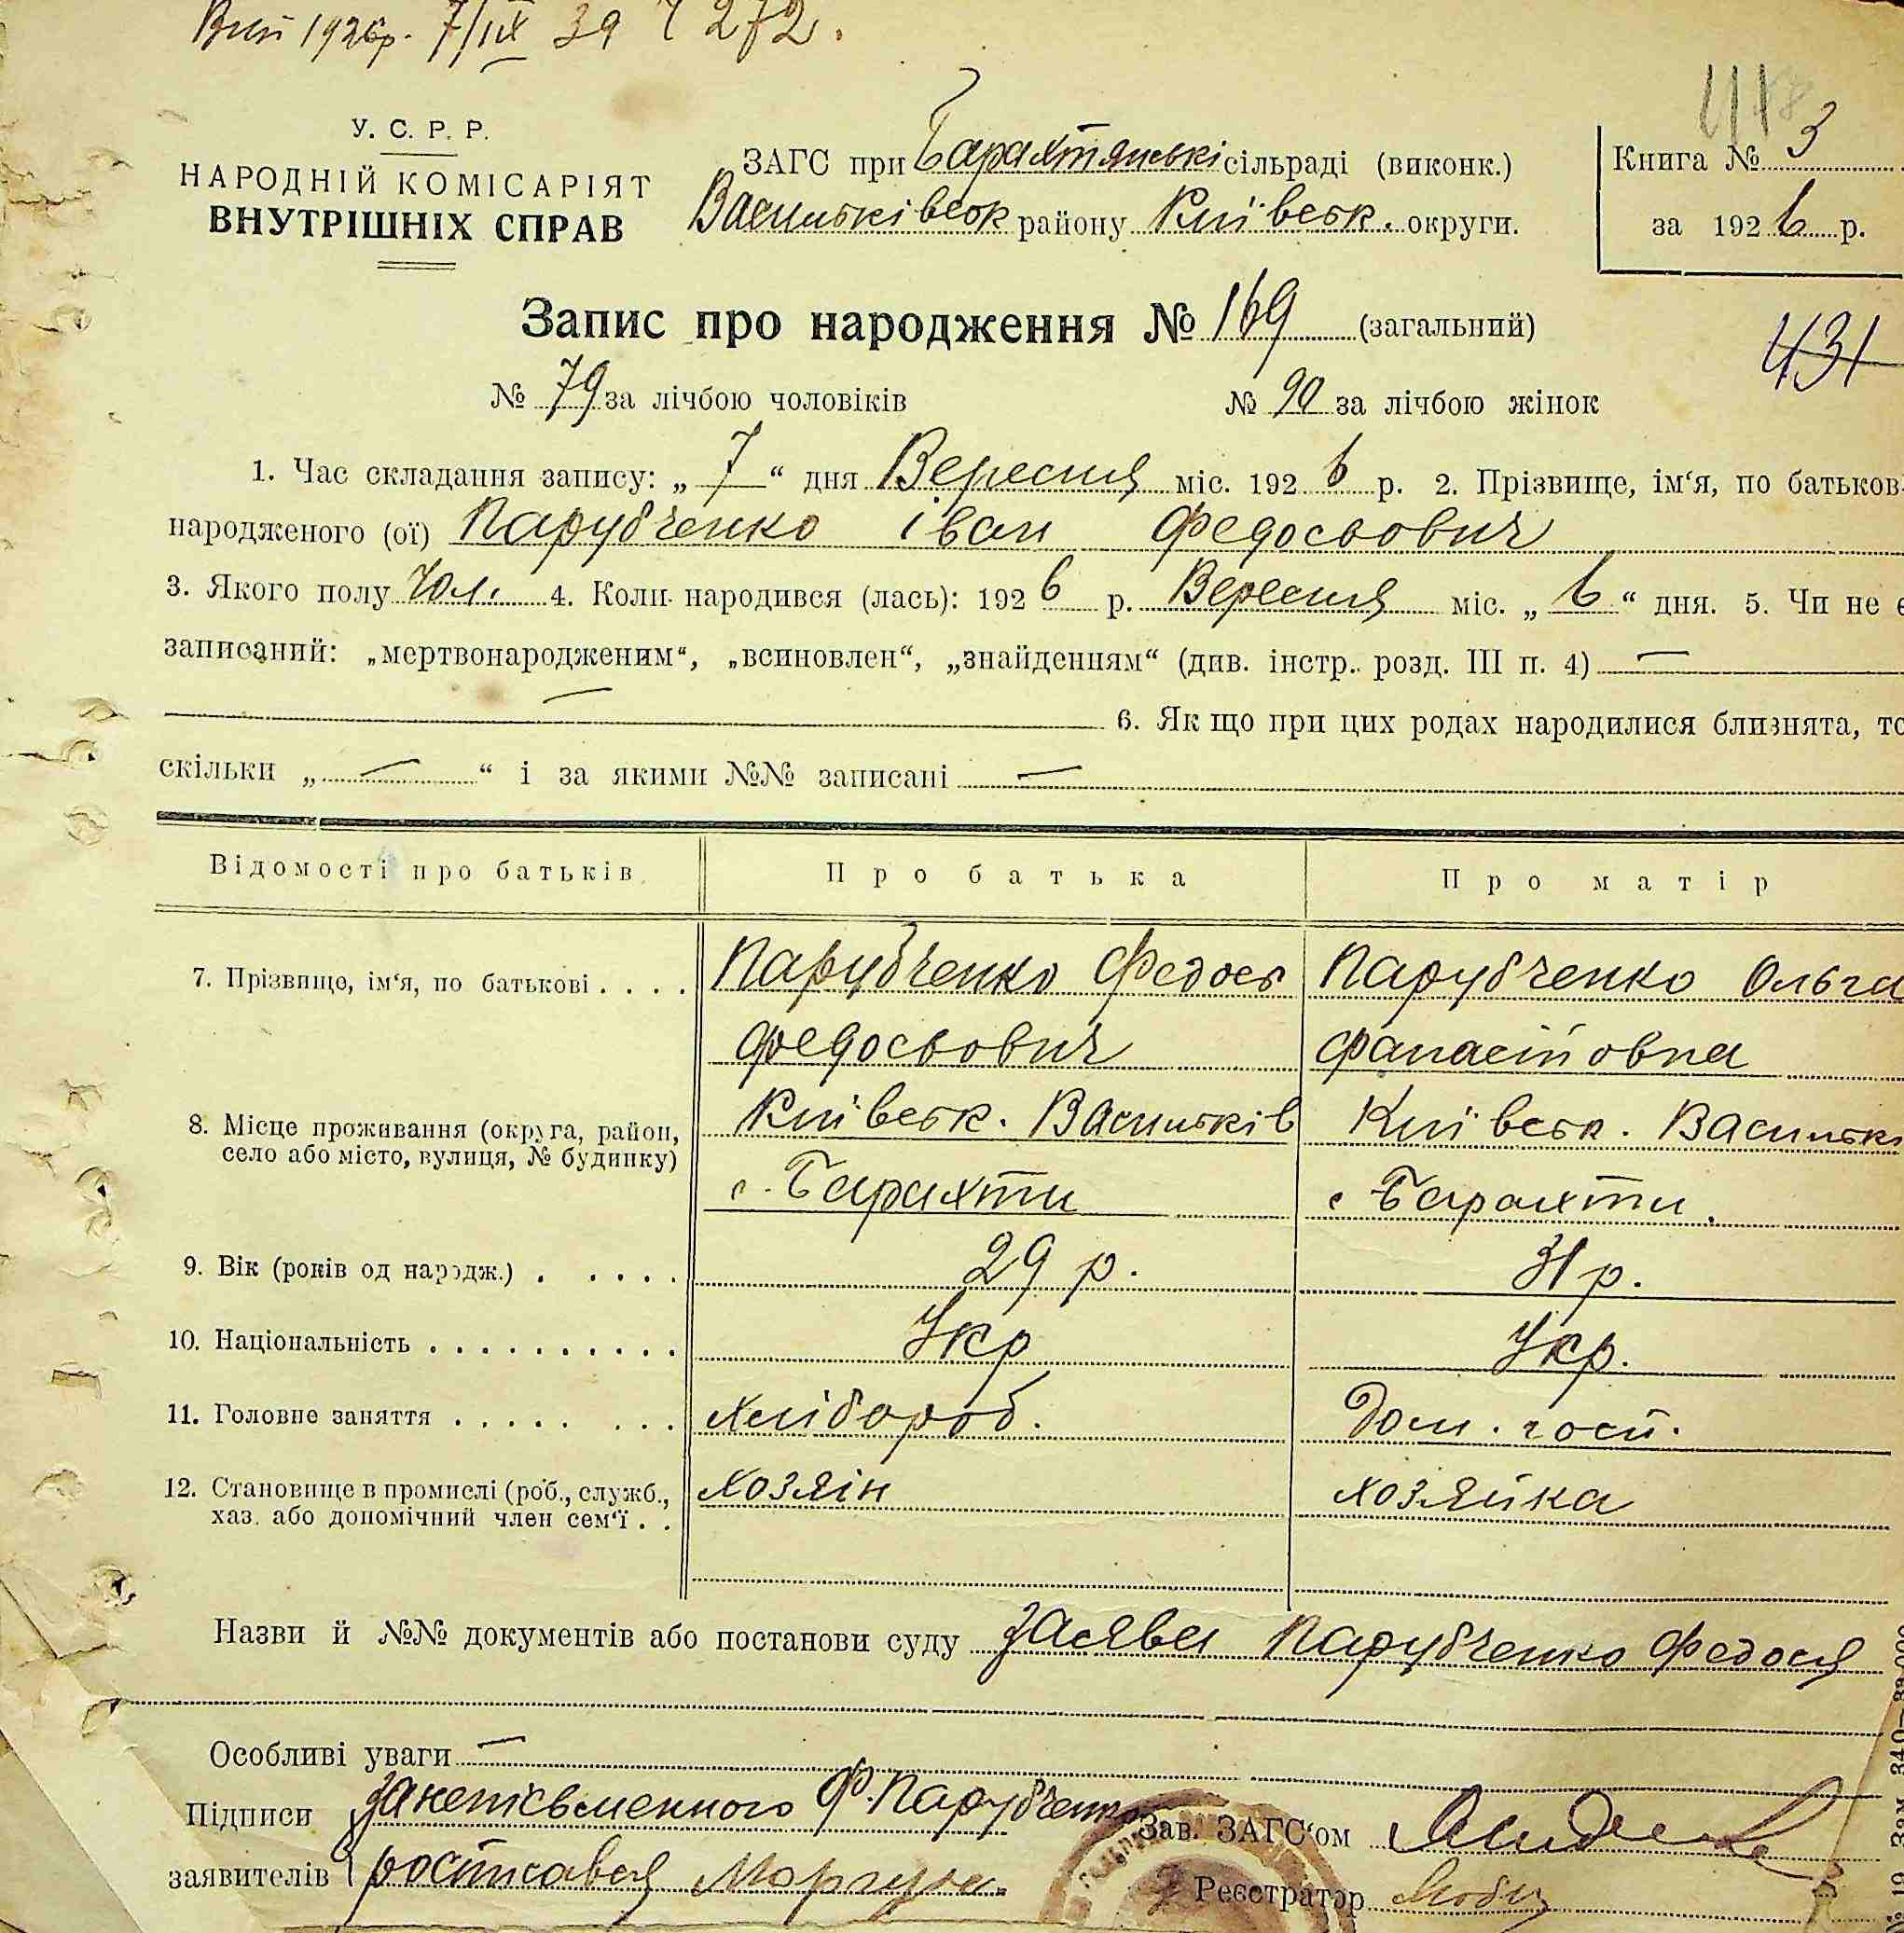 Вип 1926р. 7/ІХ за № 272.
У. С. Р. Р.
НАРОДНІЙ КОМІСАРІЯТ
ВНУТРІШНІХ СПРАВ
ЗАГС при Барахтянські сільраді (виконк.)
Васильківськ району Київськ. округи.
Книга № 3
за 1926 р.
Запис про народження № 169 (загальний)
431
№ 79 за лічбою чоловіків № 90 за лічбою жінок
1. Час складання запису: „ 7 “ дня Вересня міс. 1926 р. 2. Прізвище, ім‘я, по батьков
народженого (ої) Парубченко Іван Федосьович
3. Якого полу Чол. 4. Коли народився (лась): 1926 р. Вересня міс. „ 6 “ дня. 5. Чи не є
записаний: „мертвонародженим“, „всиновлен“, „знайденням“ (див. інстр. розд. III п. 4) —
— 6. Як що при цих родах народилися близнята, то
скільки „ — “ і за якими №№ записані —
Відомості про батьків Про батька Про матір
7. Прізвище, ім‘я, по батькові . . . . Парубченко Федось Парубченко Ольга
Федосьович Фанасійовна
8. Місце проживання (округа, район,
село або місто, вулиця, № будинку)
Київськ. Васильків Київськ. Василькі
с. Барахти с Барахти.
9. Вік (років од народж.) . . . . . 29 р. 31 р.
10. Національність . . . . . . . . . . Укр Укр.
11. Головне заняття . . . . . . . . хлібороб. Дом. госп.
12. Становище в промислі (роб., служб.,
хаз. або допомічний член сем‘ї . .
хозяїн хозяйка
Назви й №№ документів або постанови суду заява Парубченко Федося
Особливі уваги —
Підписи за неписьменного Ф. Парубченко
заявителів росписався
Зав. ЗАГС‘ом
Реєстратор